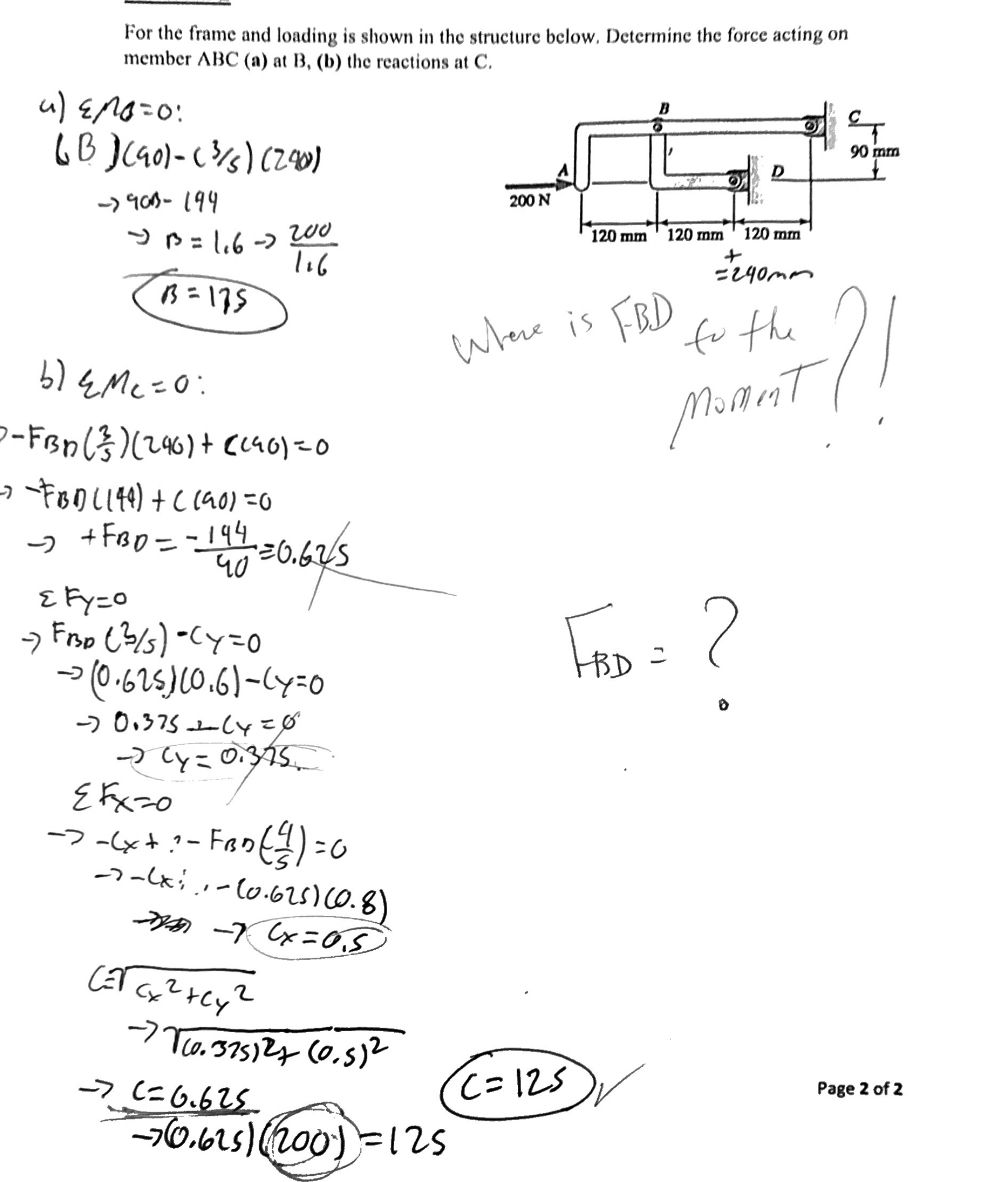 For the frame and loading is shown in the structure below. Determine the force acting on
member ABC (a) at B, (b) the reactions at C.
a) ΣMB=0:
(B)(90)-(3/5)(240)
→ 90B- 144
→ B = 1.6 → 200/1.6
B = 175
B
C
90 mm
A
D
200 N
120 mm 120 mm 120 mm
+
=240mm
Where is FBD to the
Moment?!
b) ΣMc=0:
-FBD(3/5)(240)+ C(90)=0
→ -FBD(144) + C(90)=0
→ +FBD = -144/90 =0.625
ΣFy=0
→ FBD (3/5) -Cy=0
→ (0.625)(0.6)-Cy=0
→ 0.375 - Cy = 0
→ Cy = 0.375
FBD = ?
ΣFx=0
→ -Cx + ? - FBD(4/5) =0
→ -Cx -(0.625)(0.8)
→ Cx=0.5
C=√Cx²+Cy²
→ √(0.375)²+ (0.5)²
→ C=0.625
C= 125 ✓
→(0.625)(200) =125
Page 2 of 2